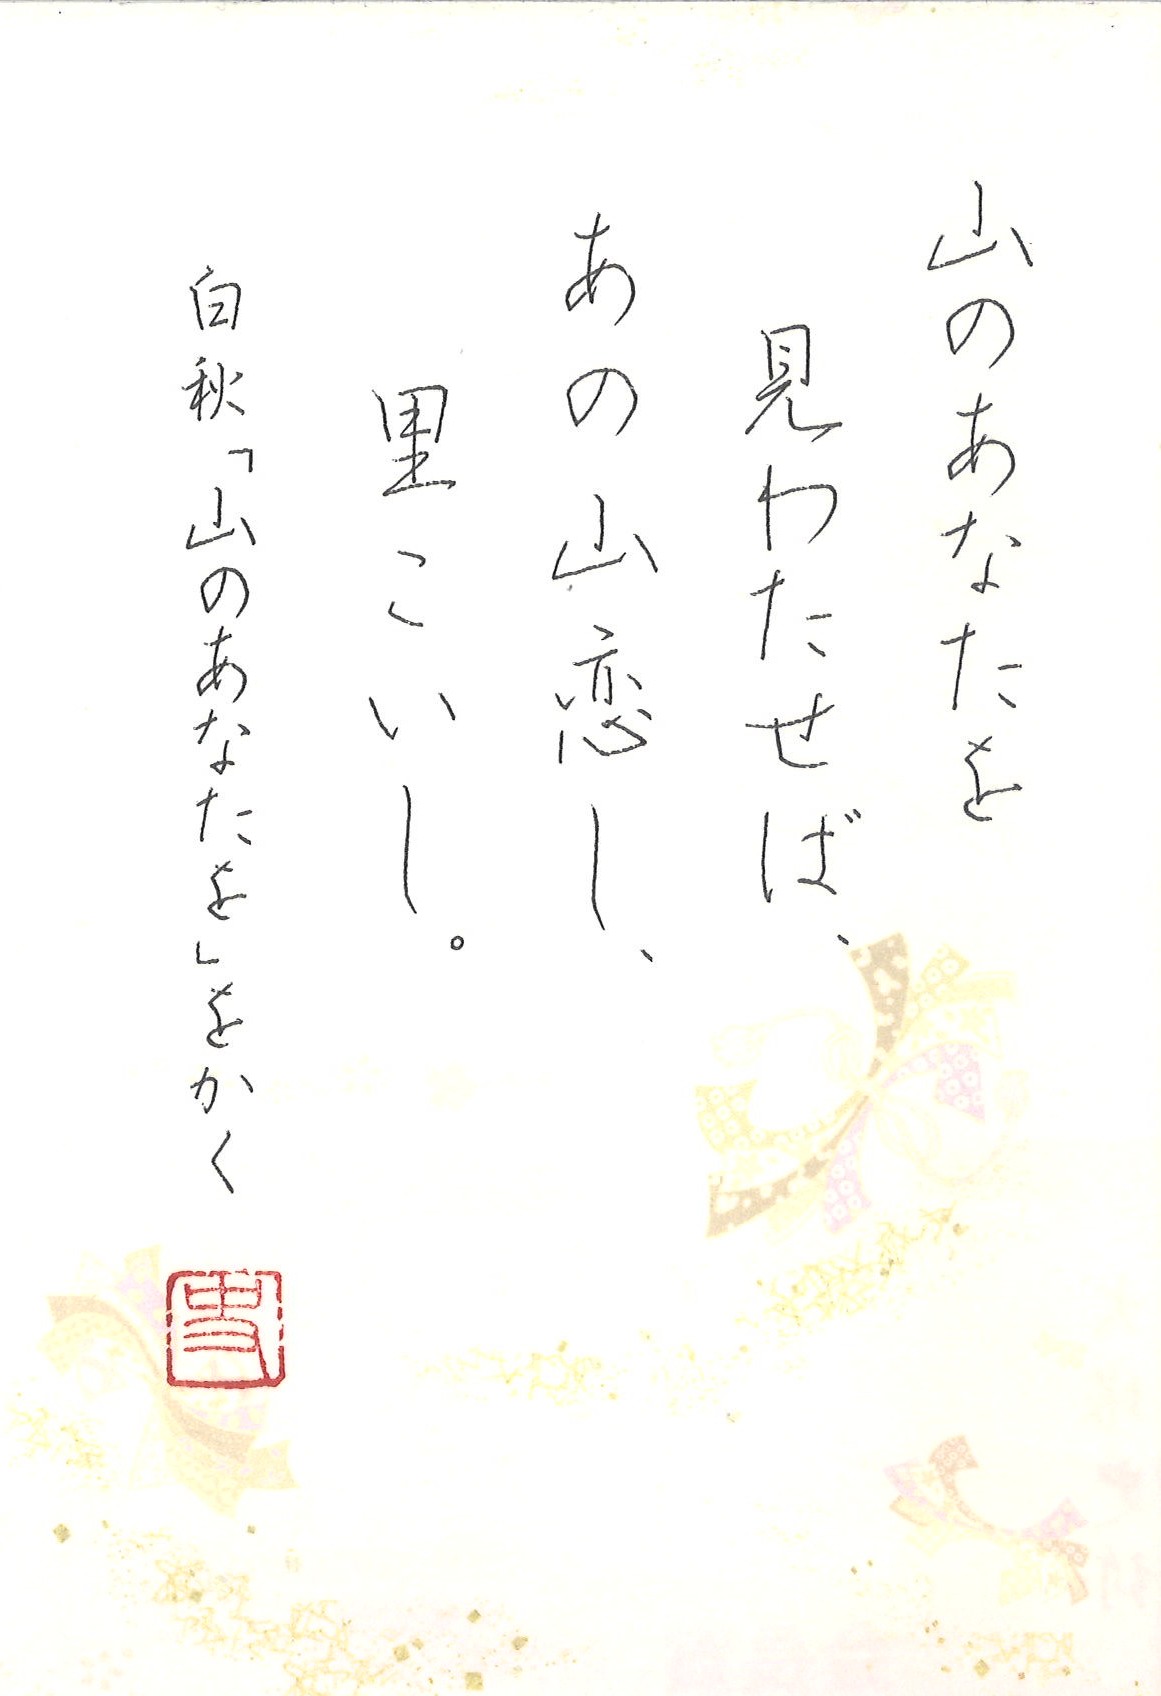 山のあなたを
見わたせば、
あの山恋し、
里こいし。
白秋「山のあなたを」をかく